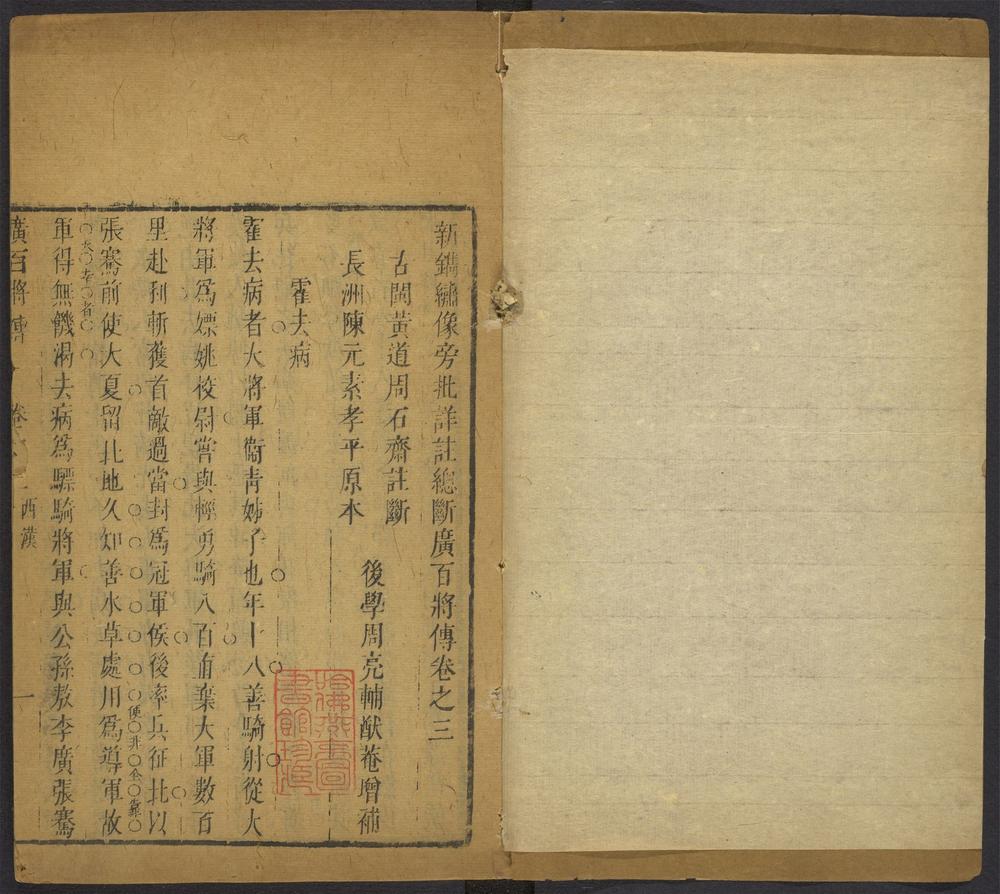 新鐫繡像旁批詳註總斷廣百將傳卷之三
古閩黃道周石齋註斷
長洲陳元素孝平原本
後學周亮輔猷菴增補
霍去病
霍去病者大將軍衞青姊子也年十八善騎射從大
將軍爲嫖姚校尉嘗與輕勇騎八百直棄大軍數百
里赴利斬獲首敵過當封爲冠軍侯後率兵征北以
便非全靠
張騫前使大夏留北地久知善水草處用爲導軍故
天幸者
軍得無饑渴去病爲驃騎將軍與公孫敖李廣張騫
廣百將傳
西漢
一